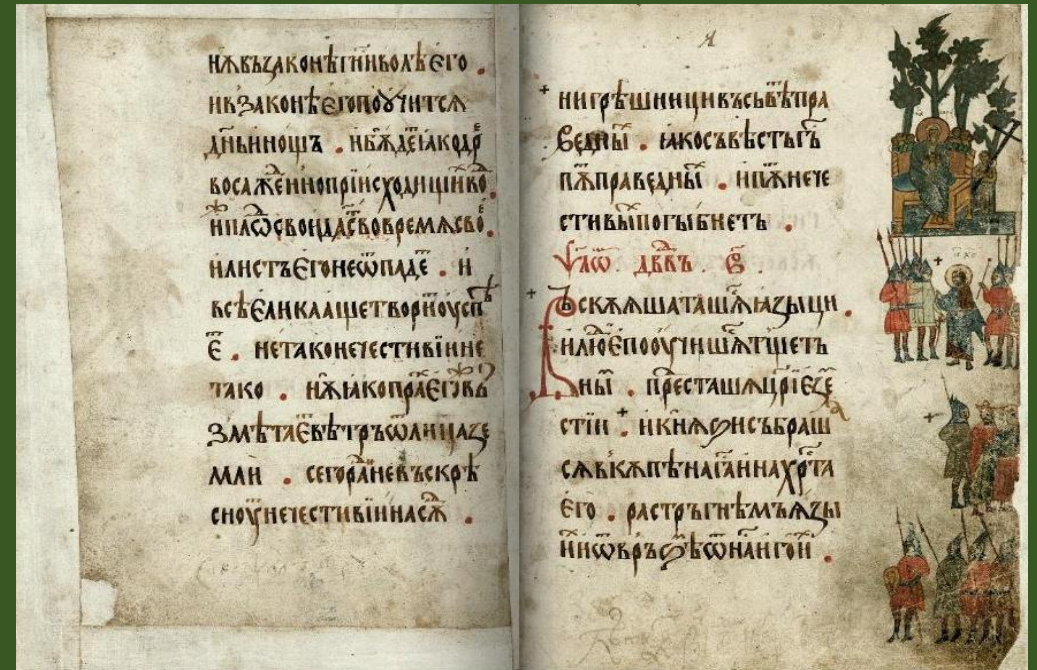 нѫвъꙁаконѣг҃ниволꙗ̀ѣ его .
ивꙁаконѣегопоꙋчитсѧ
дн҃ьинощъ . ибѫде҃ꙗкодрⷡ҇ѣ
восажⷣенноприисходищивⷪ҇
иилѿсвоидастⷭ҇вовремѧсвоⷷ .
илистъегонеѿпадеⷮ . и
всѣеликаащетворитⷮоуспѣ
еⷮ . нетаконечестивиине
тако . нѫꙗкопрахⷯегожⷤвъ
ꙁмѣтаетⷮвѣтръѿлицаꙁе
мли . сегорадиⷣневъскрⷭ҇ѣ
сноутⷮнечестивиинасѫⷣ .
ꙗ
нигрѣшницивъсъвѣтⷮпра
ведныⷯ . ꙗкосъвѣстьгⷭ҇ъ
пѫⷮправедныⷯ . ипѫⷮнече
стивыхⷯпогыбнетъ .
ѱаⷧ҇ѿ дв҃дв҃ъ . в҃ .
Въскѫѧшаташѧѧꙁыци .
илюⷣепооучишѧтⷭ҇ѧтщетъ
ныⷨ . прⷣесташѧцр҃иеꙁе
стїи . икнѧꙁисъбраш
сѧвъкѫпѣнаг҃аинахр҃та
его . растръгнѣмъѫꙁы
ихⷯиѿвръꙁѣмⷨѿнасⷭ҇игоихⷯ .